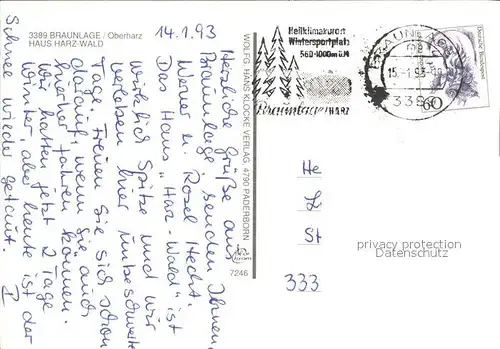 3389 BRAUNLAGE / Oberharz
HAUS HARZ-WALD
14.1.93
Herzliche Grüße aus
Braunlage, senden Ihnen,
Werner u. Rosel Hecht.
Das Haus "Harz-Wald" ist
wirklich Spitze und wir
verleben hier unbeschwerte
Tage. Freuen Sie sich schon
darauf, wenn Sie auch
hierher fahren können.
Wir hatten jetzt 2 Tage
Winter, aber heute ist der
Schnee wieder getaut.
WOLFG. HANS KLOCKE VERLAG, 4790 PADERBORN
7246
Heilklimakurort
Wintersportplatz
560-1000m ü.M
Braunlage/HARZ
BRAUNLAGE
15.-1.93
3389
60
Deutsche Bundespost
He
St
333
privacy protection
Datenschutz